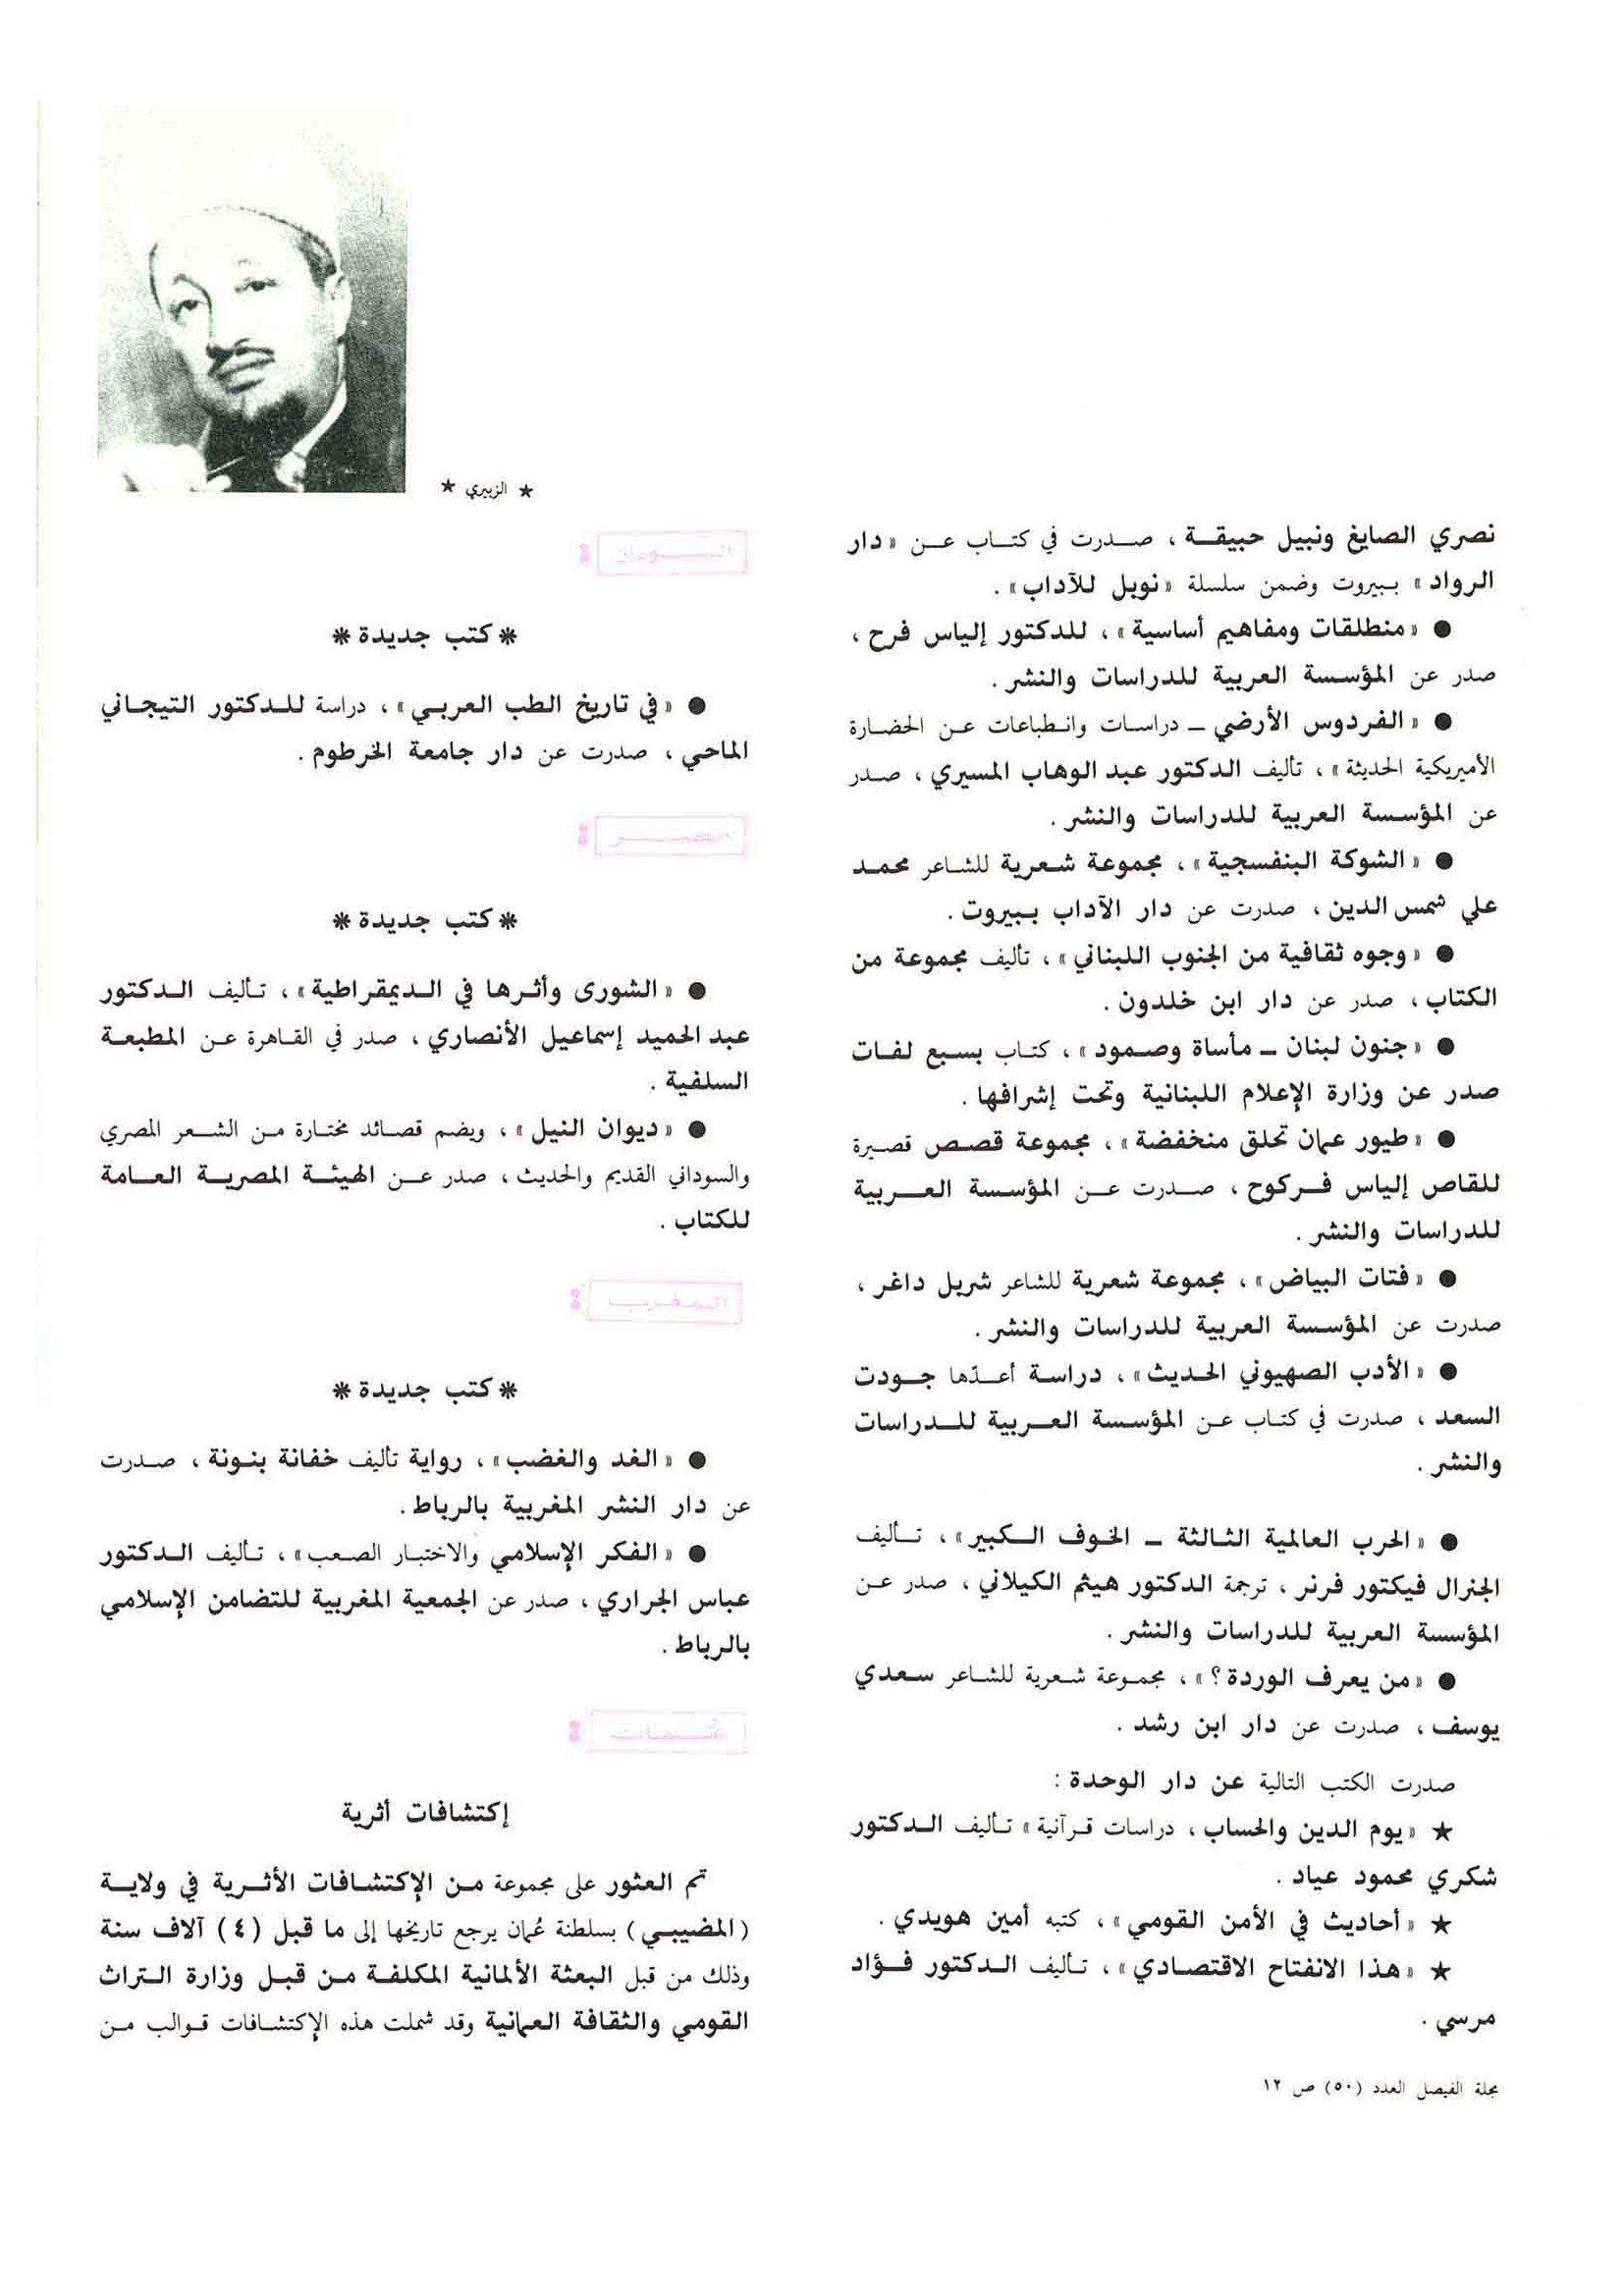 نصري الصايغ ونبيل حبيقة ، صدرت في كتاب عن « دار
الرواد » ببيروت وضمن سلسلة « نوبل للآداب » .
● « منطلقات ومفاهيم أساسية » ، للدكتور إلياس فرح ،
صدر عن المؤسسة العربية للدراسات والنشر .
● « الفردوس الأرضي – دراسات وانطباعات عن الحضارة
الأميريكية الحديثة » ، تأليف الدكتور عبد الوهاب المسيري ، صدر
عن المؤسسة العربية للدراسات والنشر .
● « الشوكة البنفسجية » ، مجموعة شعرية للشاعر محمد
علي شمس الدين ، صدرت عن دار الآداب ببيروت .
● « وجوه ثقافية من الجنوب اللبناني » ، تأليف مجموعة من
الكتاب ، صدر عن دار ابن خلدون .
● « جنون لبنان – مأساة وصمود » ، كتاب بسبع لفات
صدر عن وزارة الإعلام اللبنانية وتحت إشرافها .
● « طيور عمان تحلق منخفضة » ، مجموعة قصص قصيرة
للقاص إلياس فركوح ، صدرت عن المؤسسة العربية
للدراسات والنشر .
● « فتات البياض » ، مجموعة شعرية للشاعر شربل داغر ،
صدرت عن المؤسسة العربية للدراسات والنشر .
● « الأدب الصهيوني الحديث » ، دراسة أعدّها جودت
السعد ، صدرت في كتاب عن المؤسسة العربية للدراسات
والنشر .
● « الحرب العالمية الثالثة – الخوف الكبير » ، تأليف
الجنرال فيكتور فرنر ، ترجمة الدكتور هيثم الكيلاني ، صدر عن
المؤسسة العربية للدراسات والنشر .
● « من يعرف الوردة ؟ » ، مجموعة شعرية للشاعر سعدي
يوسف ، صدرت عن دار ابن رشد .
صدرت الكتب التالية عن دار الوحدة :
★ « يوم الدين والحساب ، دراسات قرآنية » تأليف الدكتور
شكري محمود عياد .
★ « أحاديث في الأمن القومي » ، كتبه أمين هويدي .
★ « هذا الانفتاح الاقتصادي » ، تأليف الدكتور فؤاد
مرسي .
★ الزبيري ★
الســودان
* كتب جديدة *
● « في تاريخ الطب العربي » ، دراسة للدكتور التيجاني
الماحي ، صدرت عن دار جامعة الخرطوم .
مصــر
* كتب جديدة *
● « الشورى وأثرها في الديمقراطية » ، تأليف الدكتور
عبد الحميد إسماعيل الأنصاري ، صدر في القاهرة عن المطبعة
السلفية .
● « ديوان النيل » ، ويضم قصائد مختارة من الشعر المصري
والسوداني القديم والحديث ، صدر عن الهيئة المصرية العامة
للكتاب .
المغرب
* كتب جديدة *
● « الغد والغضب » ، رواية تأليف خفانة بنونة ، صدرت
عن دار النشر المغربية بالرباط .
● « الفكر الإسلامي والاختبار الصعب » ، تأليف الدكتور
عباس الجراري ، صدر عن الجمعية المغربية للتضامن الإسلامي
بالرباط .
عُـمـان
إكتشافات أثرية
تم العثور على مجموعة من الإكتشافات الأثرية في ولاية
( المضيبي ) بسلطنة عُمان يرجع تاريخها إلى ما قبل ( ٤ ) آلاف سنة
وذلك من قبل البعثة الألمانية المكلفة من قبل وزارة التراث
القومي والثقافة العمانية وقد شملت هذه الإكتشافات قوالب من
مجلة الفيصل العدد (٥٠) ص ١٢